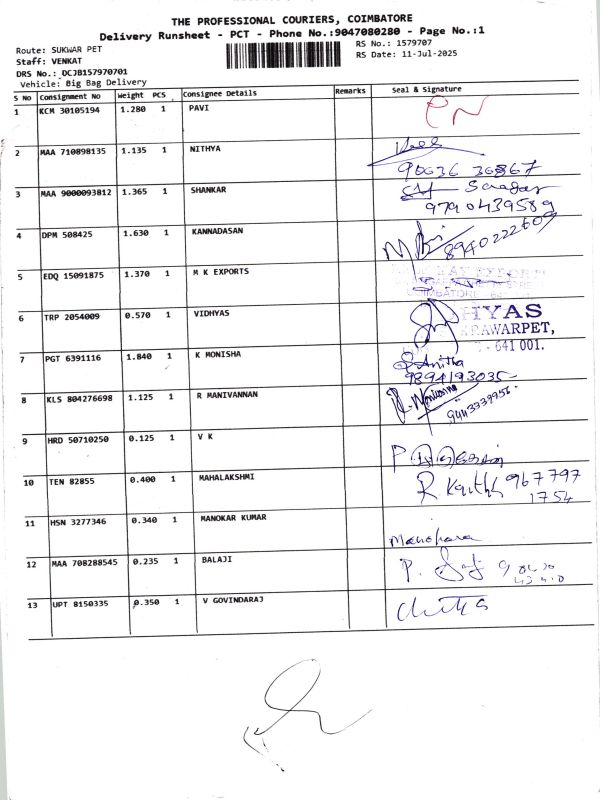 THE PROFESSIONAL COURIERS, COIMBATORE
Delivery Runsheet - PCT - Phone No.:9047080280 - Page No.:1
Route: SUKWAR PET
RS No.: 1579707
Staff: VENKAT
RS Date: 11-Jul-2025
DRS No.: DCJB157970701
Vehicle: Big Bag Delivery
S No Consignment No Weight PCS Consignee Details Remarks Seal & Signature
1 KCM 30105194 1.280 1 PAVI
2 MAA 710898135 1.135 1 NITHYA
90636 36867
3 MAA 9000093812 1.365 1 SHANKAR
9790439589
4 DPM 508425 1.630 1 KANNADASAN
8940222609
5 EDQ 15091875 1.370 1 M K EXPORTS
COIMBATORE
6 TRP 2054009 0.570 1 VIDHYAS
HYAS
RAWARPET,
- 641 001.
7 PGT 6391116 1.840 1 K MONISHA
S. Anitha
9894193035
8 KLS 804276698 1.125 1 R MANIVANNAN
9443339956
9 HRD 50710250 0.125 1 V K
10 TEN 82855 0.400 1 MAHALAKSHMI
967797
1754
11 HSN 3277346 0.340 1 MANOKAR KUMAR
Manohara
12 MAA 708288545 0.235 1 BALAJI
13 UPT 8150335 0.350 1 V GOVINDARAJ